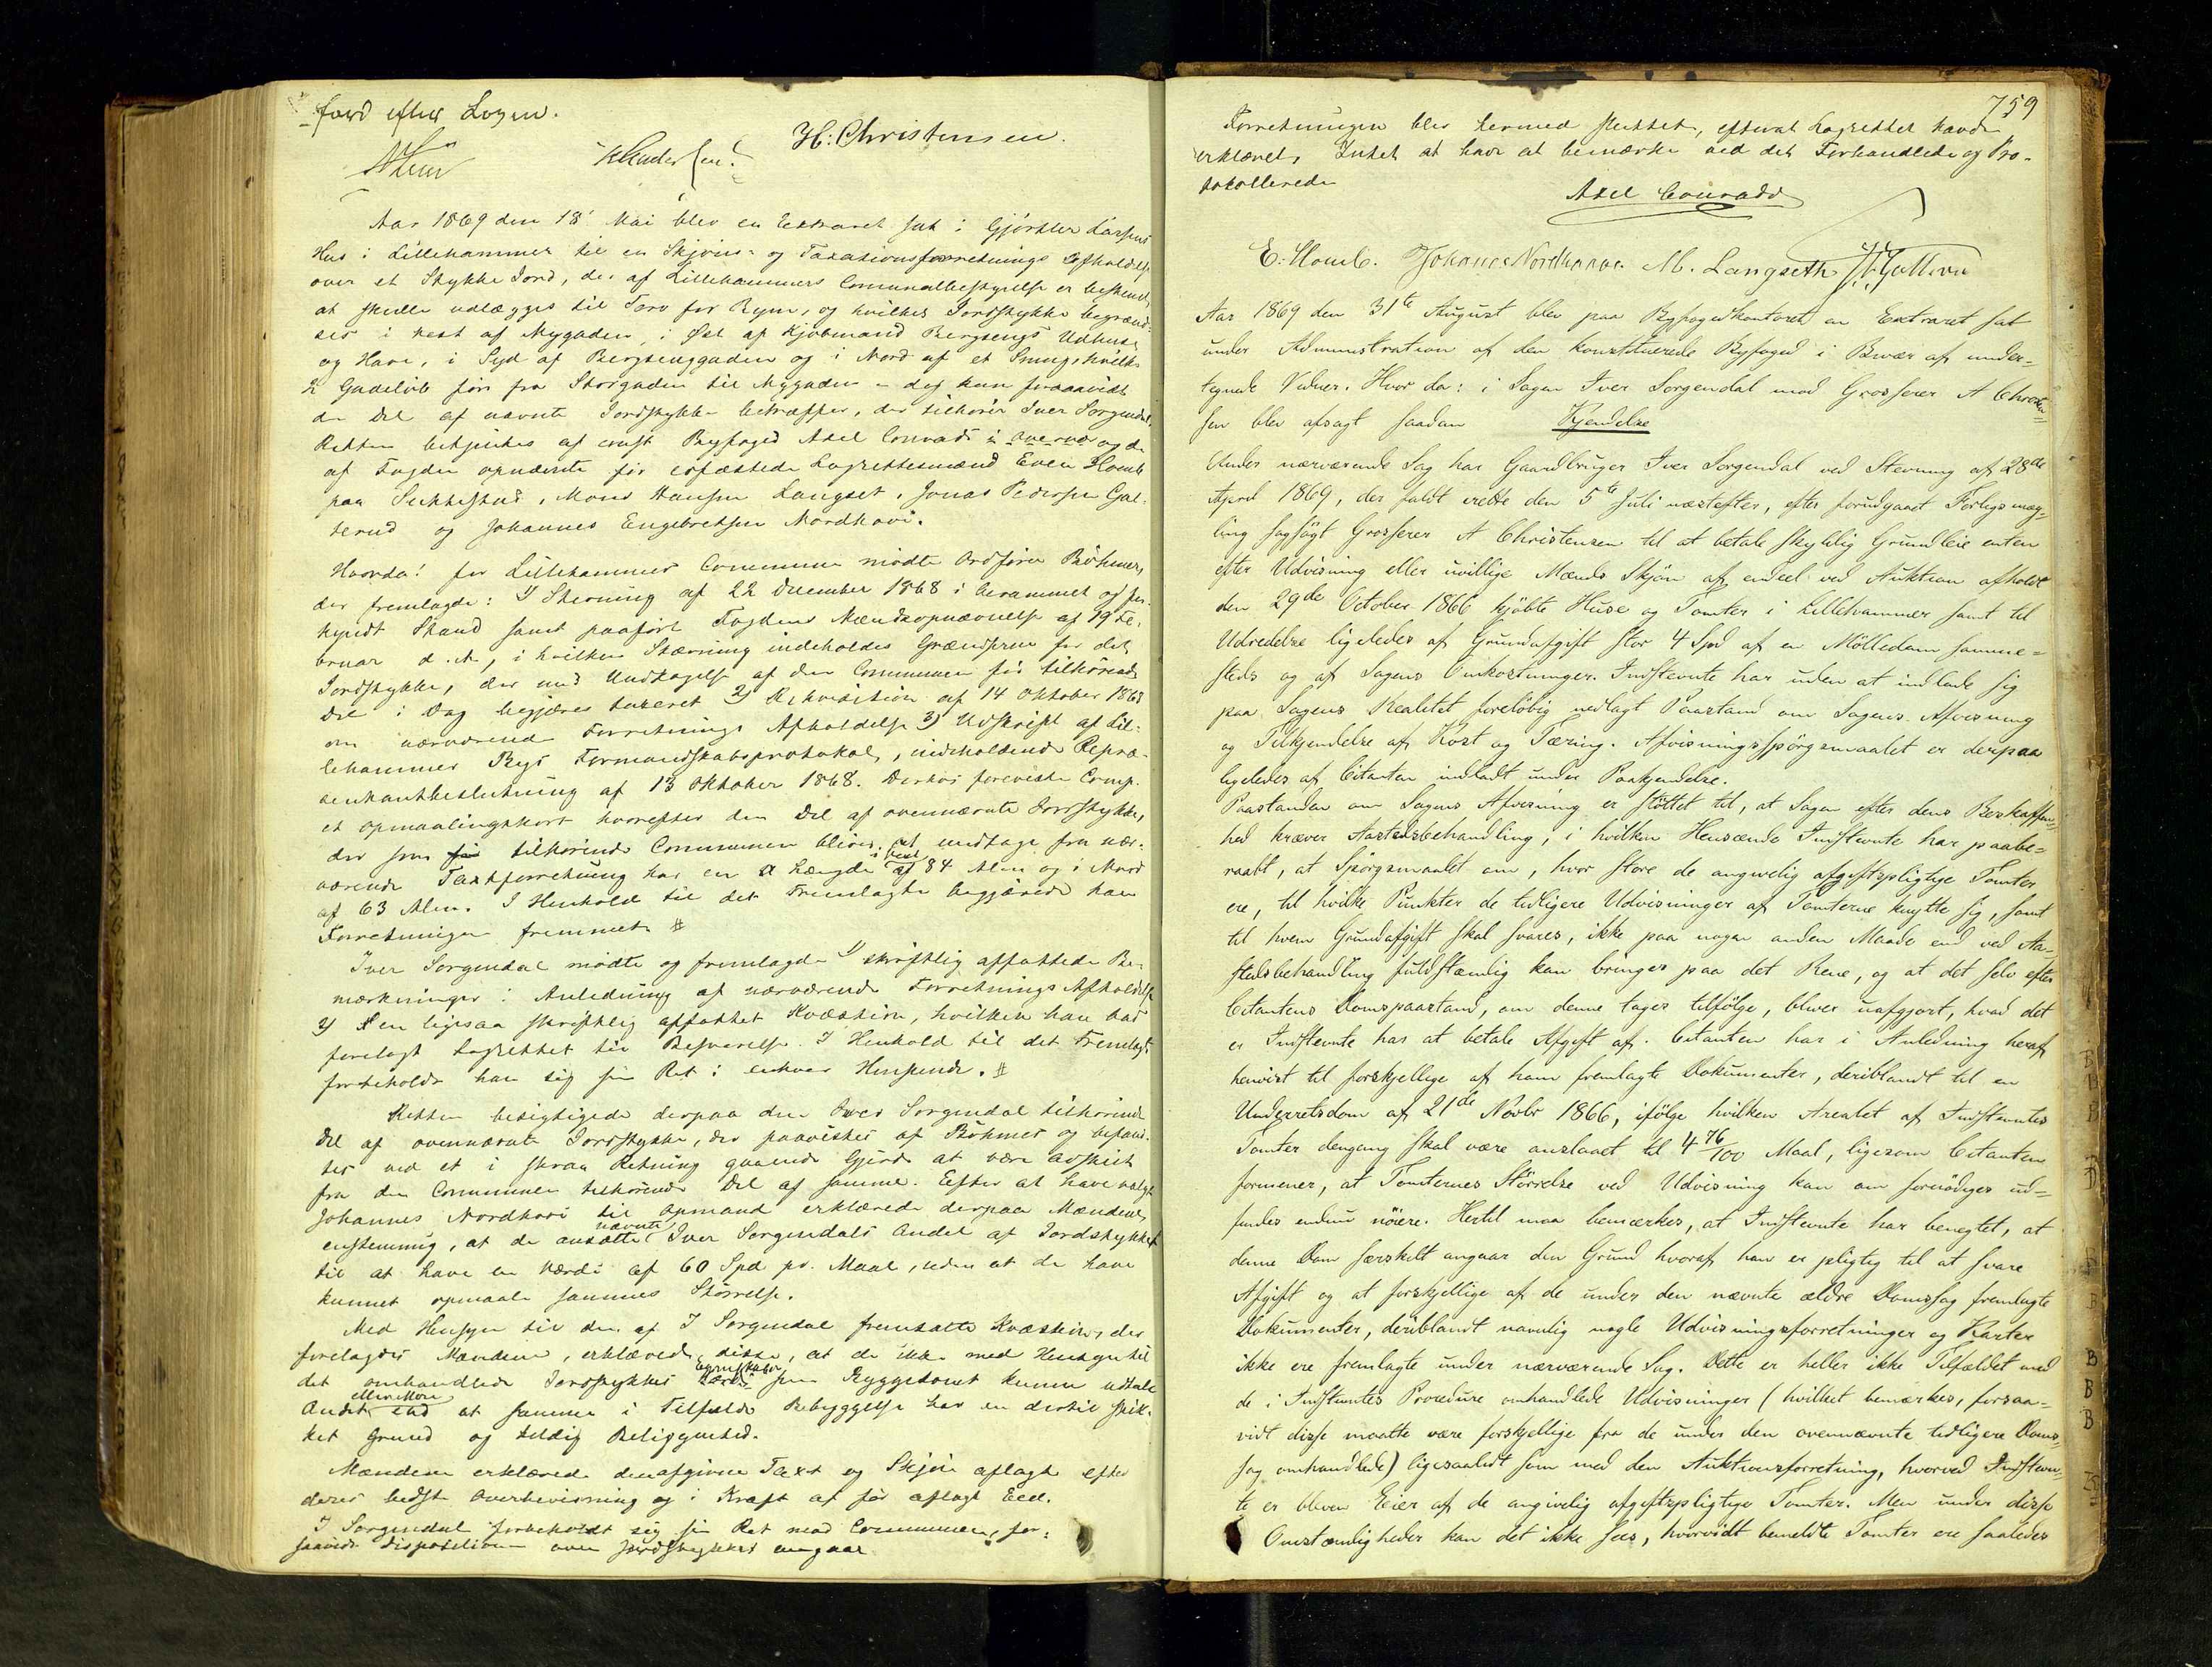 fard efter Loven.
H. Christensen.
Aar 1869 den 18' Mai blev en Extraret sat i Gjørtler Larsens
Hus i Lillehammer til en Skjøns- og Taxationsforretnings Afholdelse
over et Stykke Jord, der af Lillehammers Comunalbestyrelse er bestemt
at skulle udlægges til Torv for Byen, og hvilket Jordstykke begrænd-
ses i Vest af Nygaden, i Øst af Kjøbmand Bergsengs Udhuse
og Have, i Syd af Bergsenggaden og i Nord af et Smug, hvilke
2 Gadeløb før fra Storgaden til Nygaden – dog kun forsaavidt
den Del af nævnte Jordstykke betræffer, der tilhører Iver Sorgendal,
Retten betjentes af const Byfoged Axel Conradi i Overvær og de
af Fogden opnævnte før edfæstede Lagrettesmænd Even Homb
paa Sukkestad, Mons Hansen Langset, Jonas Pedersen Gal-
terud og Johannes Engebretsen Nordhovi.
Hvorda: for Lillehammers Commune mødte Ordfører Bøhmer,
der fremlagde: 1) Stevning af 22 December 1868 i berammet og for-
kyndt Stand samt paaført Fogdens Mændsopnævnelse af 19 Fe-
bruar d. A., i hvilken Stævning indeholdes Grændserne for det
Jordstykke, der med Undtagelse af den Communen før tilhørende
Del i Dag begjæres taxeret 2) Rekvisition af 14 Oktober 1868
om nærværende Forretnings Afholdelse 3) Udskrift af Lil-
lehammer Byes Formandskabsprotokol, indeholdende Repræ-
sentantbeslutning af 13 Oktober 1868. Derhos foreviste Comp.
et Opmaalingskart hvorefter den Del af ovennævnte Jordstykke,
der som tilhørende Communen bliver at undtage fra nær-
værende Taxtforretning har en Længde i Vest af 84 Alen og i Nord
af 63 Alen. I Henhold til det Fremlagte begjærede han
Forretningen fremmet. #
Iver Sorgendal mødte og fremlagde 1) skriftlig affattede Be-
mærkninger i Anledning af nærværende Forretnings Afholdelse
2) en ligesaa skriftlig affattet Kvæstion, hvilken han bad
forelagt Lagrettet til Besvarelse. I Henhold til det Fremlagte
forbeholdt han sig sin Ret i enhver Henseende. #
Retten besigtigede derpaa den Iver Sorgendal tilhørende
Del af ovennævnte Jordstykke, der paavistes af Bøhmer og befand-
tes ved et i skraa Retning gaaende Gjerde at være adskilt
fra den Communen tilhørende Del af samme. Efter at have valgt
Johannes Nordhovi til Opmand erklærede derpaa Mændene
enstemmig, at de ansatte nævnte Iver Sorgendals Andel af Jordstykket
til at have en Værdi af 60 Spd pr. Maal, uden at de have
kunnet opmaale sammes Størrelse.
Med Hensyn til den af I Sorgendal fremsatte Kvæstion, der
forelagdes Mændene, erklærede disse, at de ikke med Hensyn til
det omhandlede Jordstykkes Egenskaber som Byggetomt kunne udtale
Andet eller Mere end at samme i Tilfælde Bebyggelse har en dertil skik-
ket Grund og heldig Beliggenhed.
Mændene erklærede den afgivne Taxt og Skjøn aflagt efter
deres bedste Overbevisning og i Kraft af før aflagt Eed.
I Sorgendal forbeholdt sig sin Ret mod Communen, for-
saavidt Disposition over Jordstykket angaar.
759
Forretningen blev hermed sluttet, efterat Lagrettet havde
erklæret, Intet at have at bemærke ved det Forhandlede og Pro-
tokollerede
Axel Conradi
E. Homb. Johanes Nordhaave. M. Langseth
Aar 1869 den 31te August blev paa Byfogedkontoret en Extraret sat
under Administration af den konstituerede Byfoged i Bivær af under-
tegnede Vidner. Hvor da: i Sagen Iver Sorgendal mod Grosserer A Christen-
sen blev afsagt saadan Kjendelse
Under nærværende Sag har Gaardbruger Iver Sorgendal ved Stevning af 28de
April 1869, der faldt irette den 5te Juli næstefter, efter forudgaaet Forligsmæg-
ling sagsøgt Grosserer A Christensen til at betale skyldig Grundleie enten
efter Udvisning eller uvillige Mænds Skjøn af endeel ved Auktion afholdt
den 29de October 1866 kjøbte Huse og Tomter i Lillehammer samt til
Udredelse ligeledes af Grundafgift stor 4 Spd af en Mølledam samme-
steds og af Sagens Omkostninger. Indstevnte har uden at indlade sig
paa Sagens Realitet foreløbig nedlagt Paastand om Sagens Afvisning
og Tilkjendelse af Kost og Tæring. Afvisningsspørgsmaalet er derpaa
ligeledes af Citanten indladt under Paakjendelse.
Paastanden om Sagens Afvisning er støttet til, at Sagen efter dens Beskaffen-
hed kræver Aastedsbehandling, i hvilken Henseende Indstevnte har paabe-
raabt, at Spørgsmaalet om, hvor store de angivelig afgiftspligtige Tomter
ere, til hvilke Punkter de tidligere Udvisninger af Tomterne knytte sig, samt
til hvem Grundafgift skal svares, ikke paa nogen anden Maade end ved Aa-
stedsbehandling fuldstændig kan bringes paa det Rene, og at det selv efter
Citantens Domspaastand, om denne tages tilfølge, bliver uafgjort, hvad det
er Indstevnte har at betale Afgift af. Citanten har i Anledning heraf
henvist til forskjellige af ham fremlagte Dokumenter, deriblandt til en
Underretsdom af 21de Novbr 1866, ifølge hvilken Arealet af Indstevntes
Tomter dengang skal være anslaaet til 4 76/100 Maal, ligesom Citanten
formener, at Tomternes Størrelse ved Udvisning kan om fornødiges ud-
findes endnu nøiere. Hertil maa bemærkes, at Indstevnte har benegtet, at
denne Dom særskelt angaar den Grund hvoraf han er pligtig til at svare
Afgift og at forskjellige af de under den nævnte ældre Domssag fremlagte
Dokumenter, deriblandt navnlig nogle Udvisningsforretninger og Karter
ikke ere fremlagte under nærværende Sag. Dette er heller ikke Tilfældet med
de i Indstevntes Procedure omhandlede Udvisninger (hvilket bemærkes, forsaa-
vidt disse maatte være forskjellige fra de under den ovennævnte tidligere Doms-
sag omhandlede) ligesaalidt som med den Auktionsforretning, hvorved Indstevn-
te er bleven Eier af de angivelig afgiftspligtige Tomter. Men under disse
Omstændigheder kan det ikke sees, hvorvidt bemeldte Tomter ere saaledes